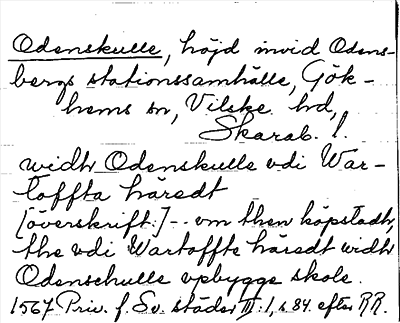 Odenskulle, höjd invid Odens-
bergs stationssamhälle, Gök-
hems sn, Vilske hd,
Skarab. l.
widh Odenskulle vdi War-
toffta häredt
[överskrift:]-- om then köpstadh,
the vdi Wartoffte häredt widh
Odenschulle vpbygge skole.
1567 Priv. f. Sv. städer III:1, s. 84. efter RR.